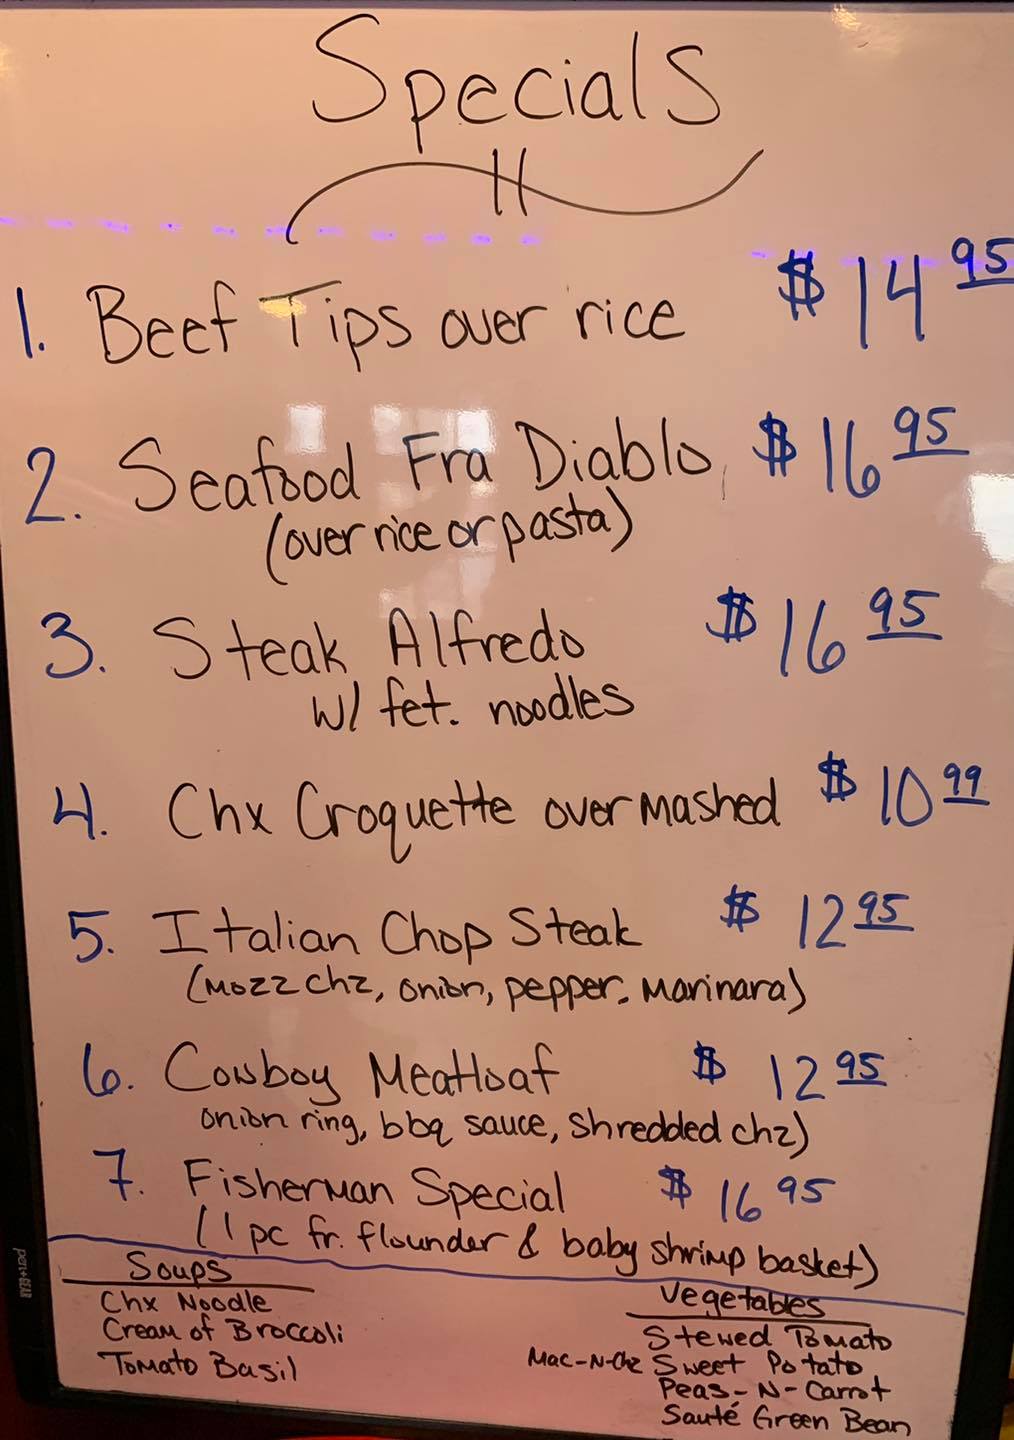 Specials
1. Beef Tips over rice $14 95
2. Seafood Fra Diablo $16 95
(over rice or pasta)
3. Steak Alfredo $16 95
w/ fet. noodles
4. Chx Croquette over mashed $10 99
5. Italian Chop Steak $12 95
(Mozz chz, onion, pepper, Marinara)
6. Cowboy Meatloaf $12 95
onion ring, bbq sauce, shredded chz)
7. Fisherman Special $16 95
(1 pc fr. flounder & baby shrimp basket)
Soups
Chx Noodle
Cream of Broccoli
Tomato Basil
Vegetables
Stewed Tomato
Mac-N-Chz Sweet Potato
Peas-N-Carrot
Sauté Green Bean
pen+GEAR